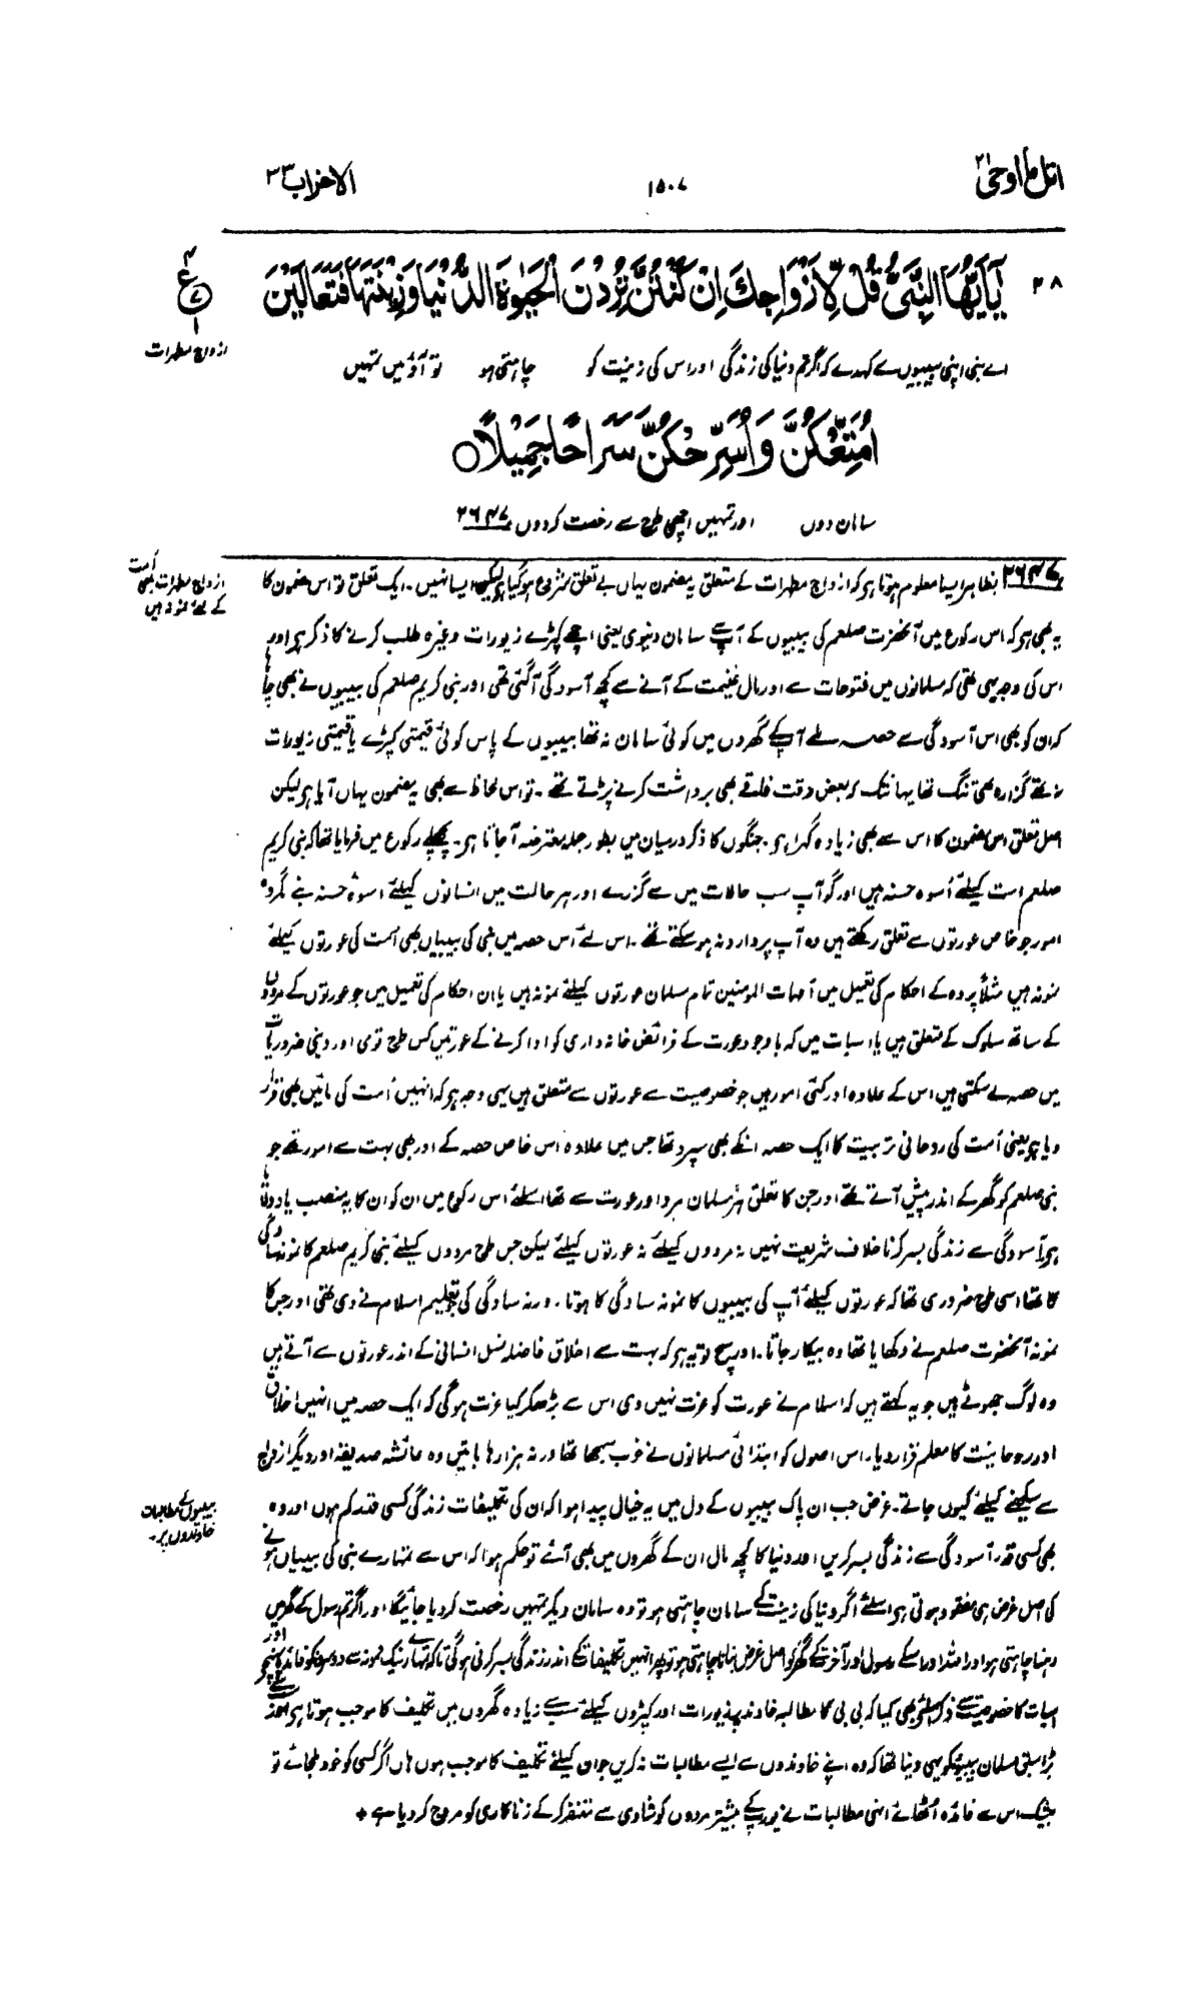 اتل ما اوحی ۲۱
۱۵۰۷
الاحزاب ۳۳
۲۸ یٰۤاَیُّهَا النَّبِیُّ قُلْ لِّاَزْوَاجِكَ اِنْ كُنْتُنَّ تُرِدْنَ الْحَیٰوةَ الدُّنْیَا وَزِیْنَتَهَا فَتَعَالَیْنَ
ازواج مطہرات
اے نبی اپنی بیبیوں سے کہدے کہ اگر تم دنیا کی زندگی اور اس کی زینت کو چاہتی ہو تو آؤ میں تمہیں
اُمَتِّعْكُنَّ وَاُسَرِّحْكُنَّ سَرَاحًا جَمِیْلًا ○
سامان دوں اور تمہیں اچھی طرح سے رخصت کردوں ۲۶۴۷
ازواج مطہرات بھی امت
کے لئے نمونہ ہیں
۲۶۴۷ بظاہر ایسا معلوم ہوتا ہو کہ ازواج مطہرات کے متعلق یہ مضمون یہاں بے تعلق شروع ہوگیا ہو لیکن ایسا نہیں۔ ایک تعلق تو اس مضمون کا
یہ بھی ہو کہ اس رکوع میں آنحضرت صلعم کی بیبیوں کے آپ سے سامان دنیوی یعنی اچھے کپڑے زیورات وغیرہ طلب کرنے کا ذکر ہو اور
اس کی وجہ یہی تھی کہ مسلمانوں میں فتوحات سے اور مال غنیمت کے آنے سے کچھ آسودگی آگئی تھی اور نبی کریم صلعم کی بیبیوں نے بھی چاہا
کہ ان کو بھی اس آسودگی سے حصہ ملے آپ کے گھروں میں کوئی سامان نہ تھا بیبیوں کے پاس کوئی قیمتی کپڑے یا قیمتی زیورات
نہ تھے گزارہ بھی تنگ تھا یہانتک کہ بعض وقت فاقے بھی برداشت کرنے پڑتے تھے۔ تو اس لحاظ سے بھی یہ مضمون یہاں آیا ہو لیکن
اصل تعلق اس مضمون کا اس سے بھی زیادہ گہرا ہو۔ جنگوں کا ذکر درمیان میں بطور جملہ معترضہ آجاتا ہو۔ پچھلے رکوع میں فرمایا تھا کہ نبی کریم
صلعم امت کیلئے اسوہ حسنہ ہیں اور گو آپ سب حالات میں سے گزرے اور ہر حالت میں انسانوں کیلئے اسوہ حسنہ بنے مگر وہ
امور جو خاص عورتوں سے تعلق رکھتے ہیں وہ آپ پر وارد نہ ہوسکتے تھے۔ اس لئے اس حصہ میں نبی کی بیبیاں بھی امت کی عورتوں کیلئے
نمونہ ہیں مثلاً پردہ کے احکام کی تعمیل میں امہات المومنین تمام مسلمان عورتوں کیلئے نمونہ ہیں یا ان احکام کی تعمیل میں جو عورتوں کے مردوں
کے ساتھ سلوک کے متعلق ہیں یا اسبات میں کہ باوجود عورت کے فرائض خانہ داری کو ادا کرنے کے عورتیں کس طرح قومی اور دینی ضروریات
میں حصہ لے سکتی ہیں اس کے علاوہ اور کئی امور ہیں جو خصوصیت سے عورتوں سے متعلق ہیں یہی وجہ ہو کہ انہیں امت کی مائیں بھی قرار
دیا ہو یعنی امت کی روحانی تربیت کا ایک حصہ انکے بھی سپرد تھا جس میں علاوہ اس خاص حصہ کے اور بھی بہت سے امور تھے جو
نبی صلعم کو گھر کے اندر پیش آتے تھے اور جن کا تعلق ہر مسلمان مرد اور عورت سے تھا اسلئے اس رکوع میں ان کو ان کا یہ منصب یاد دلایا
ہو آسودگی سے زندگی بسر کرنا خلاف شریعت نہیں نہ مردوں کیلئے نہ عورتوں کیلئے لیکن جس طرح مردوں کیلئے نبی کریم صلعم کا نمونہ سادگی
کا تھا اسی طرح ضروری تھا کہ عورتوں کیلئے آپ کی بیبیوں کا نمونہ سادگی کا ہوتا۔ ورنہ سادگی کی جو تعلیم اسلام نے دی تھی اور جس کا
نمونہ آنحضرت صلعم نے دکھایا تھا وہ بیکار جاتا۔ اور سچ تو یہ ہو کہ بہت سے اخلاق فاضلہ نسل انسانی کے اندر عورتوں سے آتے ہیں
وہ لوگ جھوٹے ہیں جو یہ کہتے ہیں کہ اسلام نے عورت کو عزت نہیں دی اس سے بڑھکر کیا عزت ہوگی کہ ایک حصہ میں انہیں اخلاق
اور روحانیت کا معلم قرار دیا۔ اس اصول کو ابتدائی مسلمانوں نے خوب سمجھا تھا ورنہ ہزارہا باتیں وہ عائشہ صدیقہ اور دیگر ازواج
بیبیوں کے مطالبات
خاوندوں پر۔
سے سیکھنے کیلئے کیوں جاتے۔ غرض جب ان پاک بیبیوں کے دل میں یہ خیال پیدا ہوا کہ ان کی تکلیفات زندگی کسی قدر کم ہوں اور وہ
بھی کسی قدر آسودگی سے زندگی بسر کریں اور دنیا کا کچھ مال ان کے گھروں میں بھی آئے تو حکم ہوا کہ اس سے تمہارے نبی کی بیبیاں ہونے
کی اصل غرض ہی مفقود ہوتی ہو اسلئے اگر دنیا کی زینت کے سامان چاہتی ہو تو وہ سامان دیکر تمہیں رخصت کردیا جائیگا اور اگر تم رسول کے گھر میں
رہنا چاہتی ہو اور اللہ اور اسکے رسول اور آخرت کے گھر کو اصل غرض بنانا چاہتی ہو تو پھر انہیں تکلیفات کے اندر زندگی بسر کرنی ہوگی تاکہ تمہارے نیک نمونہ سے دوسروں کو فائدہ پہنچے اور
اسبات کا خصوصیت سے ذکر اسلئے بھی کیا کہ بی بی کا مطالبہ خاوند پر زیورات اور کپڑوں کیلئے سب سے زیادہ گھروں میں تکلیف کا موجب ہوتا ہو
بڑا سبق مسلمان بیبیوں کو یہی دینا تھا کہ وہ اپنے خاوندوں سے ایسے مطالبات نہ کریں جو ان کیلئے تکلیف کا موجب ہوں ہاں اگر کسی کو خود ملجائے تو
بیشک اس سے فائدہ اٹھائے انہی مطالبات نے یورپ کے بیشتر مردوں کو شادی سے متنفر کرکے زناکاری کو مروج کردیا ہے ٭